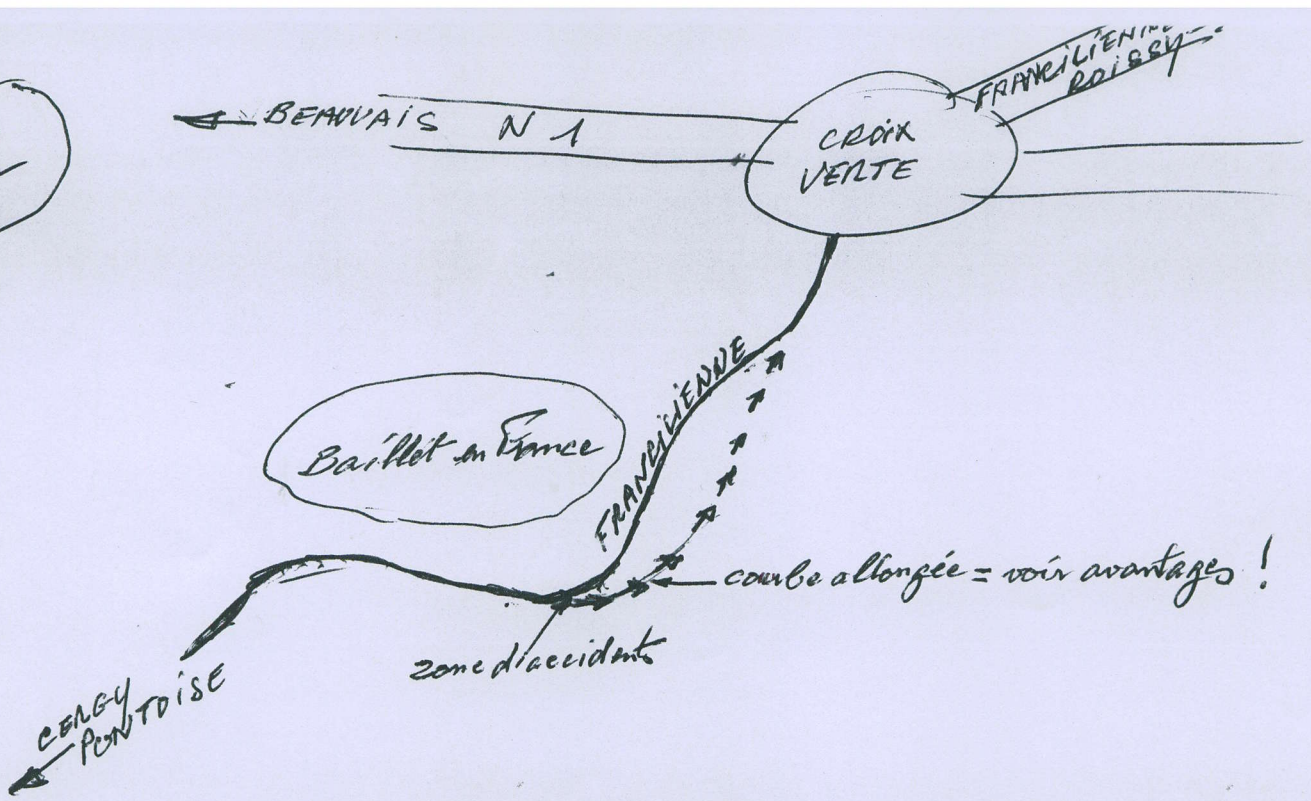 FRANCILIENNE
ROISSY
BEAUVAIS N 1
CROIX
VERTE
FRANCILIENNE
Baillet en France
courbe allongée = voir avantages !
zone d'accidents
CERGY
PONTOISE